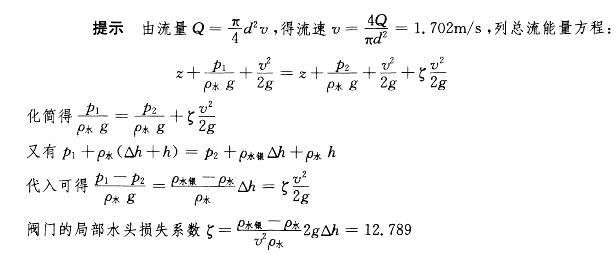 提示 由流量 Q = π/4 d²v ,得流速 v = 4Q/πd² = 1.702m/s ,列总流能量方程:
z + p₁/ρ水 g + v²/2g = z + p₂/ρ水 g + v²/2g + ζ v²/2g
化简得 p₁/ρ水 g = p₂/ρ水 g + ζ v²/2g
又有 p₁ + ρ水 (Δh + h) = p₂ + ρ水银 Δh + ρ水 h
代入可得 p₁ − p₂/ρ水 g = ρ水银 − ρ水/ρ水 Δh = ζ v²/2g
阀门的局部水头损失系数 ζ = ρ水银 − ρ水/v²ρ水 2gΔh = 12.789